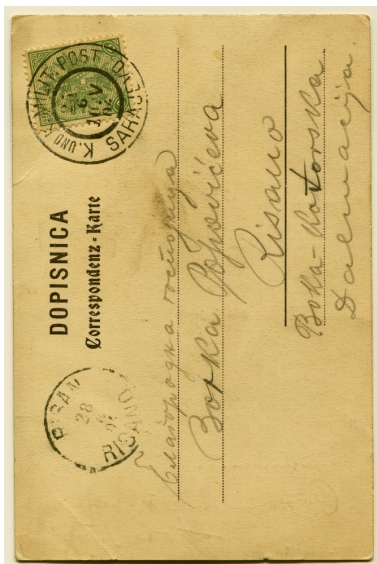 K. UND K. MILIT. POST
SARAJEVO
DOPISNICA
Correspondenz-Karte
RISAN
28
RISANO
Благородна госпођица
Zorka Popovićeva
Risano
Boka-Kotorska
Dalmacija.